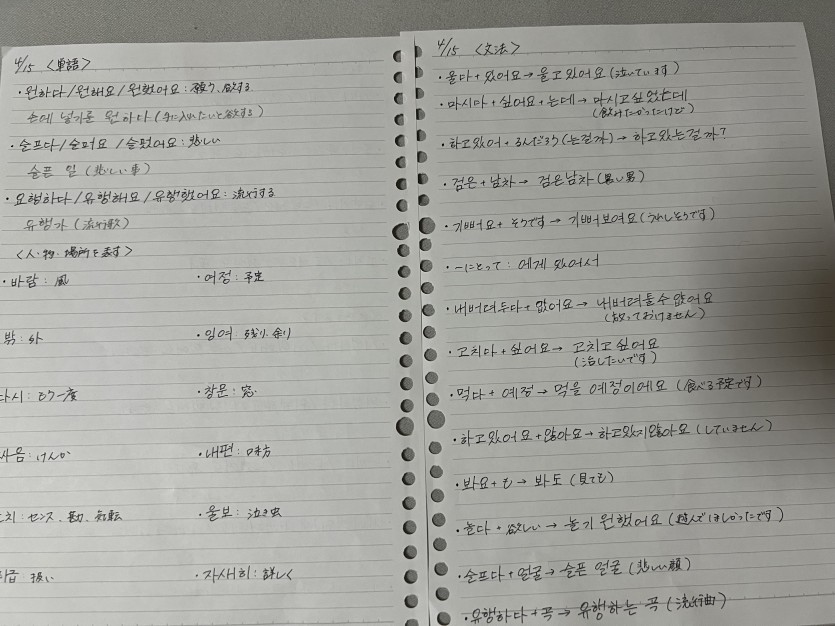 4/15 〈単語〉
・원하다/원해요/원했어요:願う、欲する
손에 넣기를 원하다(手に入れたいと欲する)
・슬프다/슬퍼요/슬펐어요:悲しい
슬픈 일(悲しい事)
・요행하다/유행해요/유행했어요:流行する
유행가(流行歌)
〈人・物・場所を表す〉
・바람:風
・여정:予定
밖:外
・잉여:残り、余り
다시:もう一度
・창문:窓
싸움:けんか
・내편:味方
치:センス、勘、気転
・울보:泣き虫
취급:扱い
・자세히:詳しく
4/15 〈文法〉
・울다+있어요→울고있어요(泣いています)
・마시다+싶어요+는데→마시고싶었는데
(飲みたかったけど)
・하고있어+るんだろう(는걸까)→하고있는걸까?
・검은+남자→검은남자(黒い男)
・기뻐요+そうです→기뻐보여요(うれしそうです)
・ーにとって:에게 있어서
・내버려두다+없어요→내버려둘수없어요
(放っておけません)
・고치다+싶어요→고치고싶어요
(治したいです)
・먹다+예정→먹을 예정이에요(食べる予定です)
・하고있어요+않아요→하고있지않아요(していません)
・봐요+も→봐도(見ても)
・놀다+欲しい→놀기 원했어요(遊んでほしかったです)
・슬프다+얼굴→슬픈 얼굴(悲しい顔)
・유행하다+곡→유행하는 곡(流行曲)